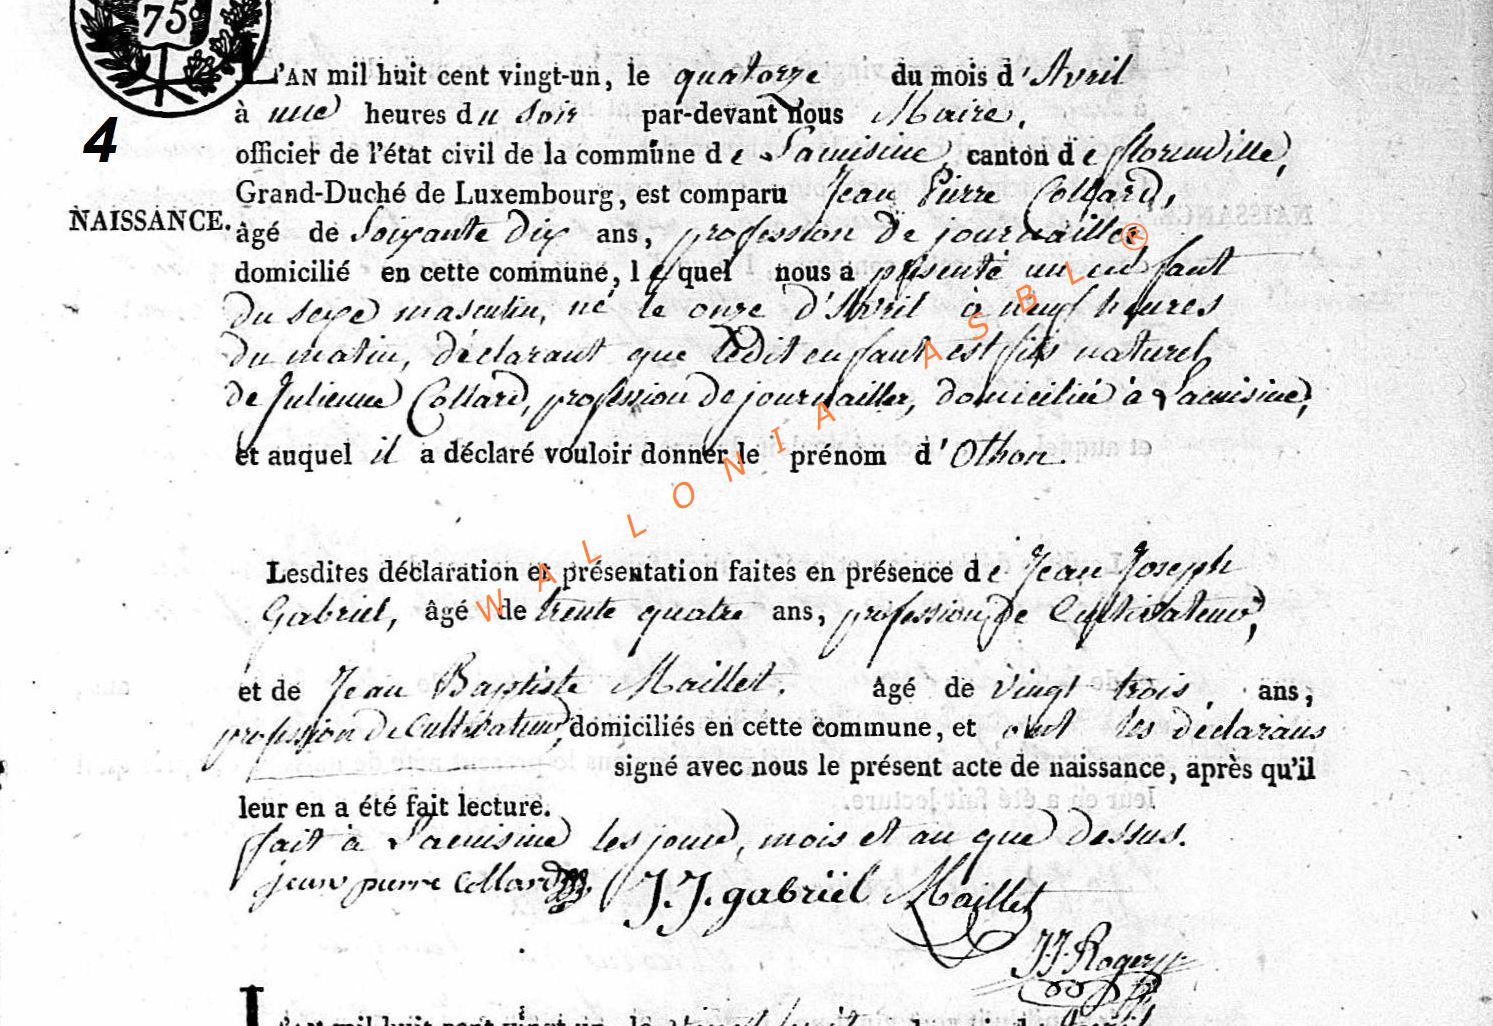 75
L'AN mil huit cent vingt-un, le quatorze du mois d'Avril
à une heures du soir par-devant nous Maire,
4
officier de l'état civil de la commune de Lacuisine, canton de florenville,
Grand-Duché de Luxembourg, est comparu Jean Pierre Collard,
NAISSANCE.
âgé de Soixante dix ans, profession de journailler
domicilié en cette commune, lequel nous a présenté un enfant
du sexe masculin, né le onze d'Avril à neuf heures
du matin, déclarant que ledit enfant est fils naturel
de Julienne Collard, profession de journailler, domiciliée à Lacuisine,
et auquel il a déclaré vouloir donner le prénom d'Othon.
WALLONIA ASBL ®
Lesdites déclaration et présentation faites en présence de Jean Joseph
Gabriel, âgé de trente quatre ans, profession de Cultivateur,
et de Jean Baptiste Maillet. âgé de vingt trois ans,
profession de Cultivateur, domiciliés en cette commune, et ont les déclarans
signé avec nous le présent acte de naissance, après qu'il
leur en a été fait lecture.
fait à Lacuisine les jour, mois et an que dessus.
jean pierre Collard J.J. gabriel Maillet
J.J. Rogery
L'AN mil huit cent vingt-un, le du mois d'Avril